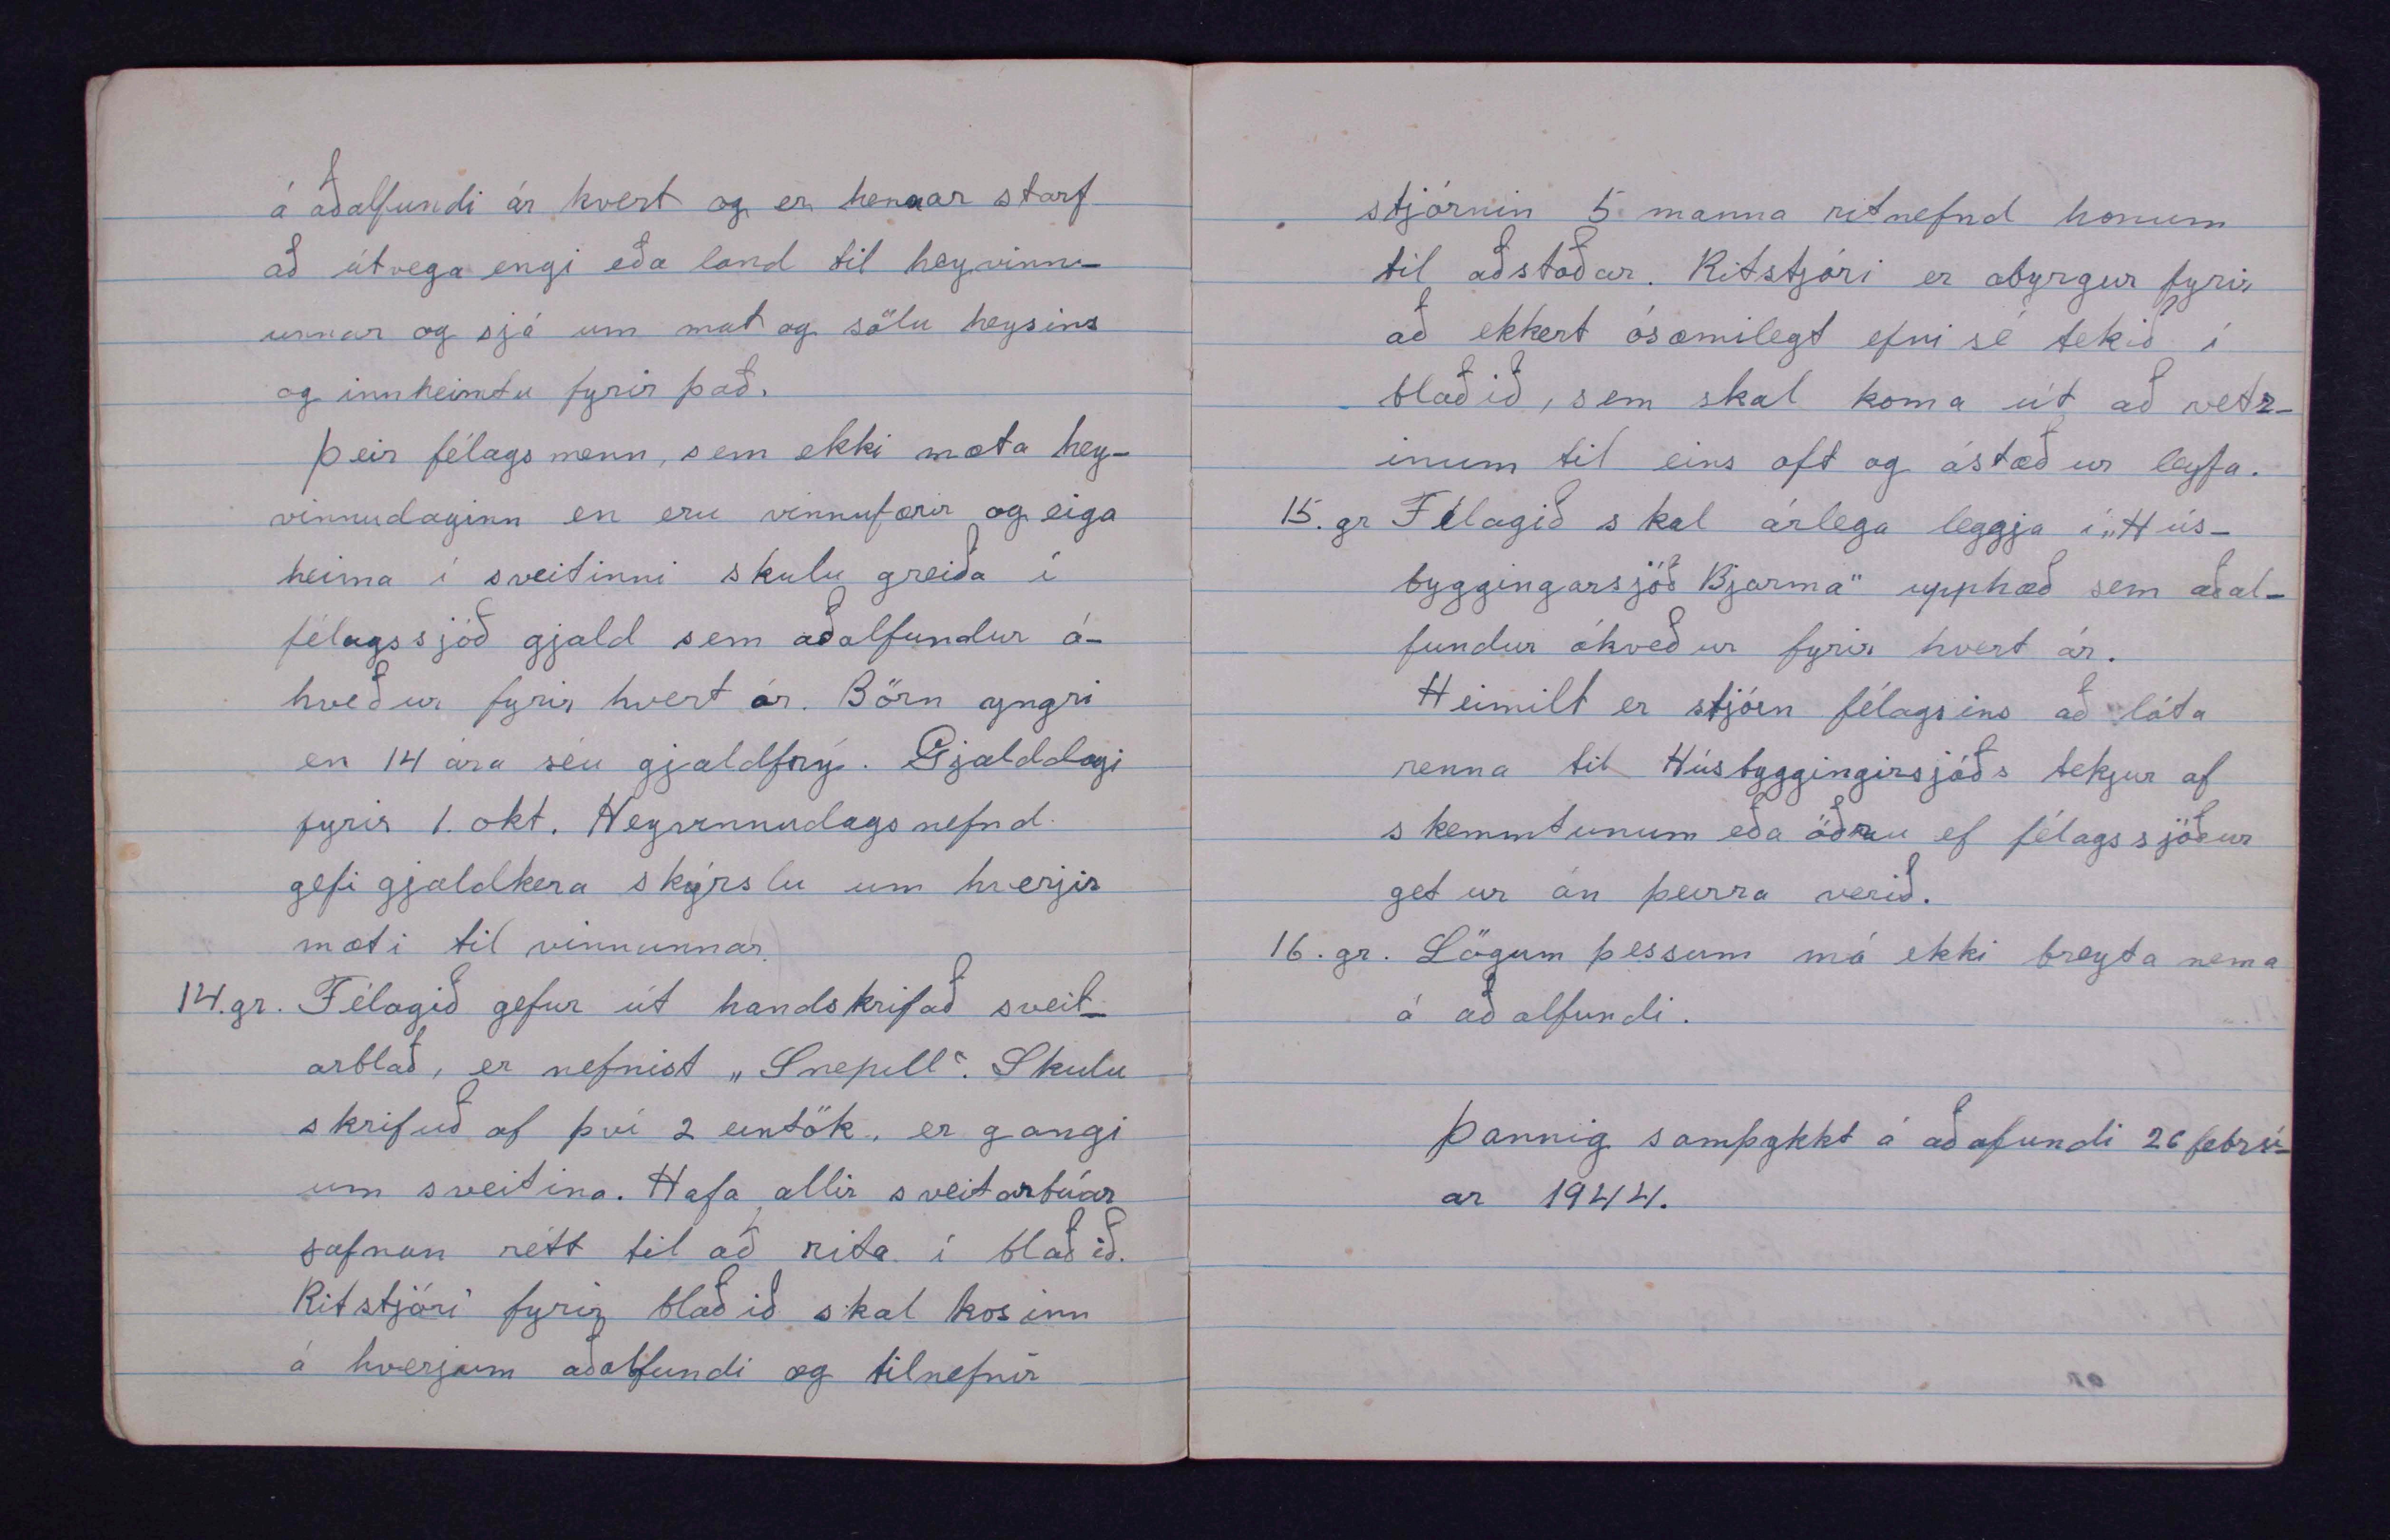 á aðalfundi ár hvert og er hennar starf
að útvega engi eða land til heyvinnu-
unnar og sjá um mat og sölu heysins
og innheimtu fyrir það.
Þeir félagsmenn, sem ekki mæta hey-
vinnudaginn en eru vinnufærir og eiga
heima í sveitinni skulu greiða í
félagssjóð gjald sem aðalfundur á-
kveður fyrir hvert ár. Börn yngri
en 14 ára séu gjaldfrý. Gjalddagi
fyrir 1. okt. Heyvinnudagsnefnd
gefi gjaldkera skýrslu um hverjir
mæti til vinnunnar.
14. gr. Félagið gefur út handskrifað sveit-
arblað, er nefnist „Snepill“. Skulu
skrifuð af því 2 eintök, er gangi
um sveitina. Hafa allir sveitarbúar
jafnan rétt til að rita í blaðið.
Ritstjóri fyrir blaðið skal kosinn
á hverjum aðalfundi og tilnefnir
stjórnin 5 manna ritnefnd honum
til aðstoðar. Ritstjóri er abyrgur fyrir
að ekkert ósæmilegt efni sé tekið í
blaðið, sem skal koma út að vetr-
inum til eins oft og ástæður leyfa.
15. gr Félagið skal árlega leggja í „Hús-
byggingarsjóð Bjarma" upphæð sem aðal-
fundur ákveður fyrir hvert ár.
Heimilt er stjórn félagsins að láta
renna til Húsbyggingirsjóðs tekjur af
skemmtunum eða öðru ef félagssjóður
getur án þeirra verið.
16. gr. Lögum þessum má ekki breyta nema
á aðalfundi.
Þannig samþykkt á aðafundi 26 febrú-
ar 1944.